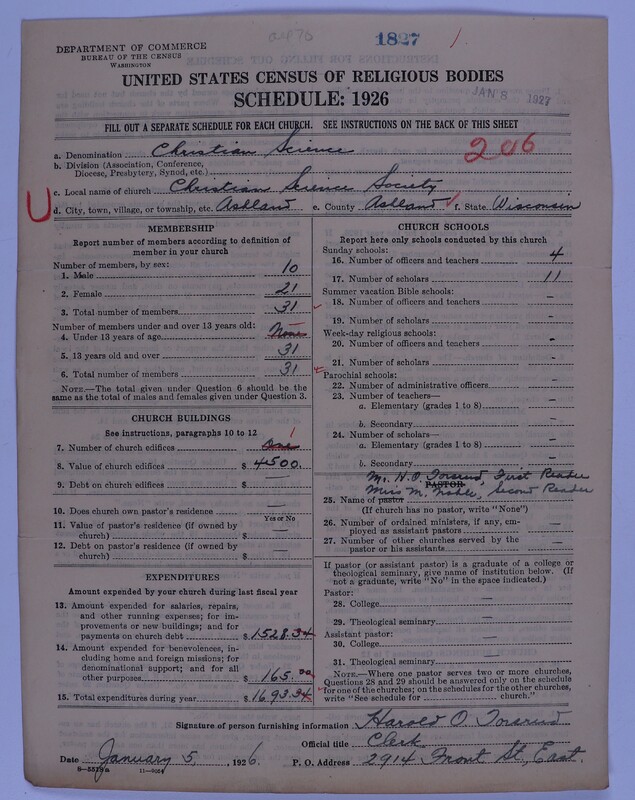 1827
DEPARTMENT OF COMMERCE
BUREAU OF THE CENSUS
WASHINGTON
UNITED STATES CENSUS OF RELIGIOUS BODIES
SCHEDULE: 1926
JAN 8 1927
FILL OUT A SEPARATE SCHEDULE FOR EACH CHURCH. SEE INSTRUCTIONS ON THE BACK OF THIS SHEET
a. Denomination Christian Science
206
b. Division (Association, Conference, Diocese, Presbytery, Synod, etc.)
c. Local name of church Christian Science Society
U
d. City, town, village, or township, etc. Ashland e. County Ashland f. State Wisconsin
MEMBERSHIP
Report number of members according to definition of
member in your church
Number of members, by sex:
1. Male 10
2. Female 21
3. Total number of members 31
Number of members under and over 13 years old:
4. Under 13 years of age None
5. 13 years old and over 31
6. Total number of members 31
NOTE.—The total given under Question 6 should be the
same as the total of males and females given under Question 3.
CHURCH BUILDINGS
See instructions, paragraphs 10 to 12
7. Number of church edifices One 1
8. Value of church edifices $ 4500.
9. Debt on church edifices $ —
10. Does church own pastor's residence? —
Yes or No
11. Value of pastor's residence (if owned by
church) $ —
12. Debt on pastor's residence (if owned by
church) $ —
EXPENDITURES
Amount expended by your church during last fiscal year
13. Amount expended for salaries, repairs,
and other running expenses; for im-
provements or new buildings; and for
payments on church debt $ 1528.34
14. Amount expended for benevolences, in-
cluding home and foreign missions; for
denominational support; and for all
other purposes $ 165.00
15. Total expenditures during year $ 1693.34
CHURCH SCHOOLS
Report here only schools conducted by this church
Sunday schools:
16. Number of officers and teachers 4
17. Number of scholars 11
Summer vacation Bible schools:
18. Number of officers and teachers —
19. Number of scholars —
Week-day religious schools:
20. Number of officers and teachers -
21. Number of scholars —
Parochial schools:
22. Number of administrative officers —
23. Number of teachers—
a. Elementary (grades 1 to 8) —
b. Secondary —
24. Number of scholars—
a. Elementary (grades 1 to 8) —
b. Secondary —
Mr. H.O. First Reader
PASTOR
Miss M. Noble, Second Reader
25. Name of pastor
(If church has no pastor, write "None")
26. Number of ordained ministers, if any, em-
ployed as assistant pastors —
27. Number of other churches served by the
pastor or his assistants —
If pastor (or assistant pastor) is a graduate of a college or
theological seminary, give name of institution below. (If
not a graduate, write "No" in the space indicated.)
Pastor:
28. College —
29. Theological seminary —
Assistant pastor:
30. College —
31. Theological seminary —
NOTE.—Where one pastor serves two or more churches,
Questions 28 and 29 should be answered only on the schedule
for one of the churches; on the schedules for the other churches,
write "See schedule for church."
Signature of person furnishing information Harold O
Official title Clerk
Date January 5, 1926. P. O. Address 2914 Front St, East.
8—5519a 11—9064